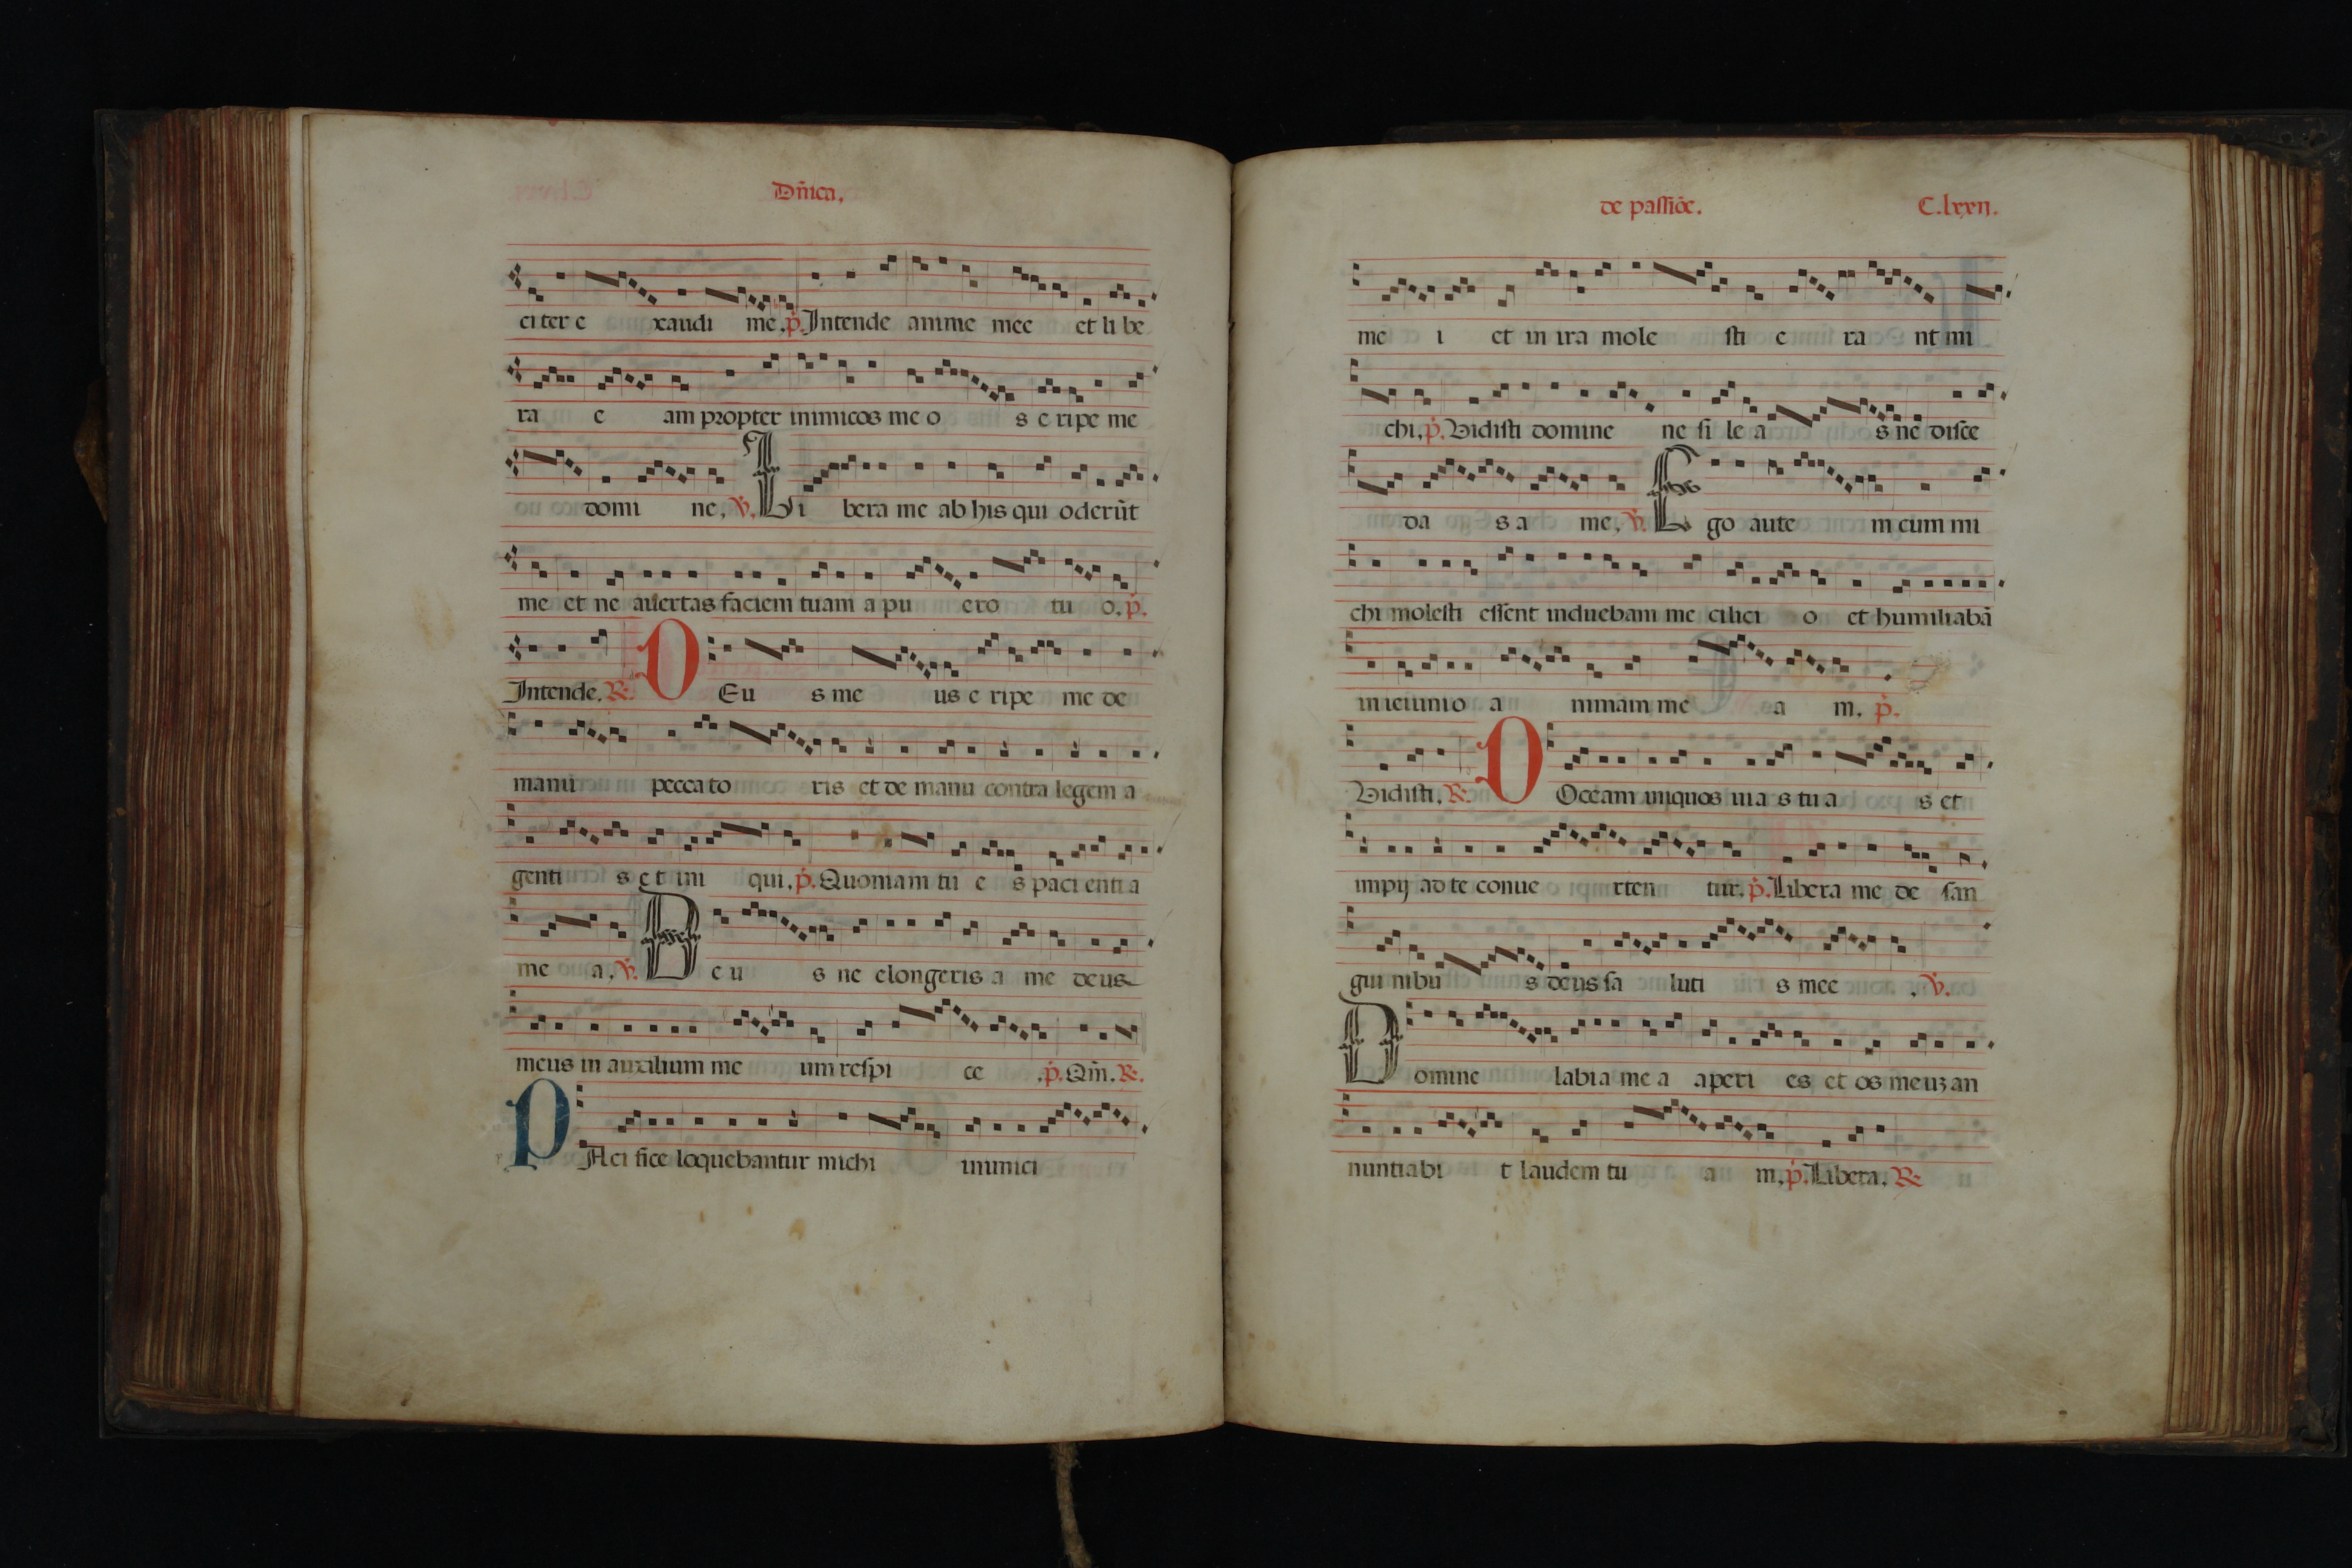 Dn̄ica.
citer e xaudi me. p̄. Intende anime mee et li be
ra e am propter inimicos me o s e ripe me
domi ne, v. Li bera me ab his qui oderūt
me et ne auertas faciem tuam a pu ero tu o. p̄.
Intende. R. DEu s me us e ripe me de
manu pecca to ris et de manu contra legem a
genti s et ini qui. p̄. Quoniam tu e s paci enti a
me a. v. De u s ne elongeris a me deus
meus in auxilium me um respi ce . p̄. Qm̄. R.
PAci fice loquebantur michi inimici
de passiōe. C.lxxij.
me i et in ira mole sti e ra nt mi
chi. p̄. Vidisti domine ne si le a s ne disce
da s a me. v. Ego aute m cum mi
chi molesti essent induebam me cilici o et humiliabā
in ieiunio a nimam me a m. p̄.
Vidisti. R. DOceam iniquos uia s tu a s et
impij ad te conue rten tur. p̄. Libera me de san
gui nibu s deus sa luti s mee . v.
Domine labia me a aperi es et os meuz an
nuntiabi t laudem tu a m. p̄. Libera. R.